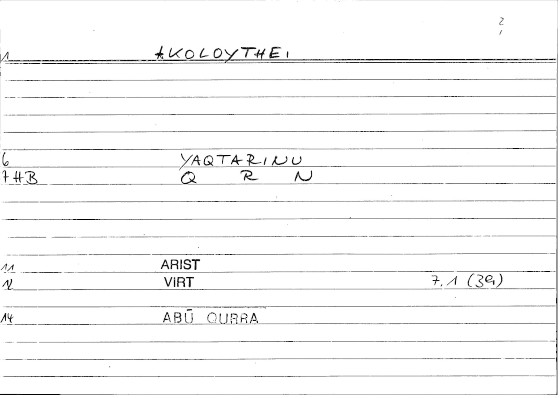 2
1
1 AKOLOYTHEI
6 YAQTARINU
7 HB Q R N
11 ARIST
12 VIRT 7.1 (39)
14 ABŪ QURRA